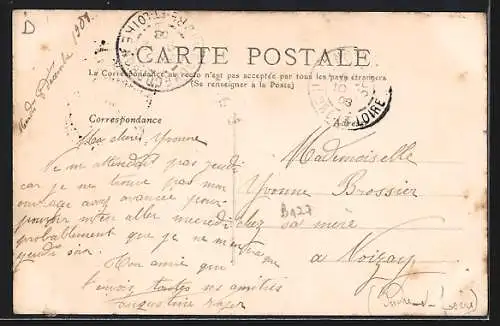 D
Mardi 8 décembre 1908
CARTE POSTALE
La Correspondance au recto n'est pas acceptée par tous les pays étrangers
(Se renseigner à la Poste)
Correspondance
Ma chère Yvonne
Ne m'attendez pas jeudi
car je ne trouve pas mon
ouvrage assez avancé pour
pouvoir m'en aller mercredi
probablement que je ne m'en irai
jeudi soir.
Ton amie qui
t'envoie toutes ses amitiés
augustine
Adresse
Mademoiselle
Yvonne Brossier
chez sa mère
a Noizay
(Indre-et-Loire)
B927
LOIRE